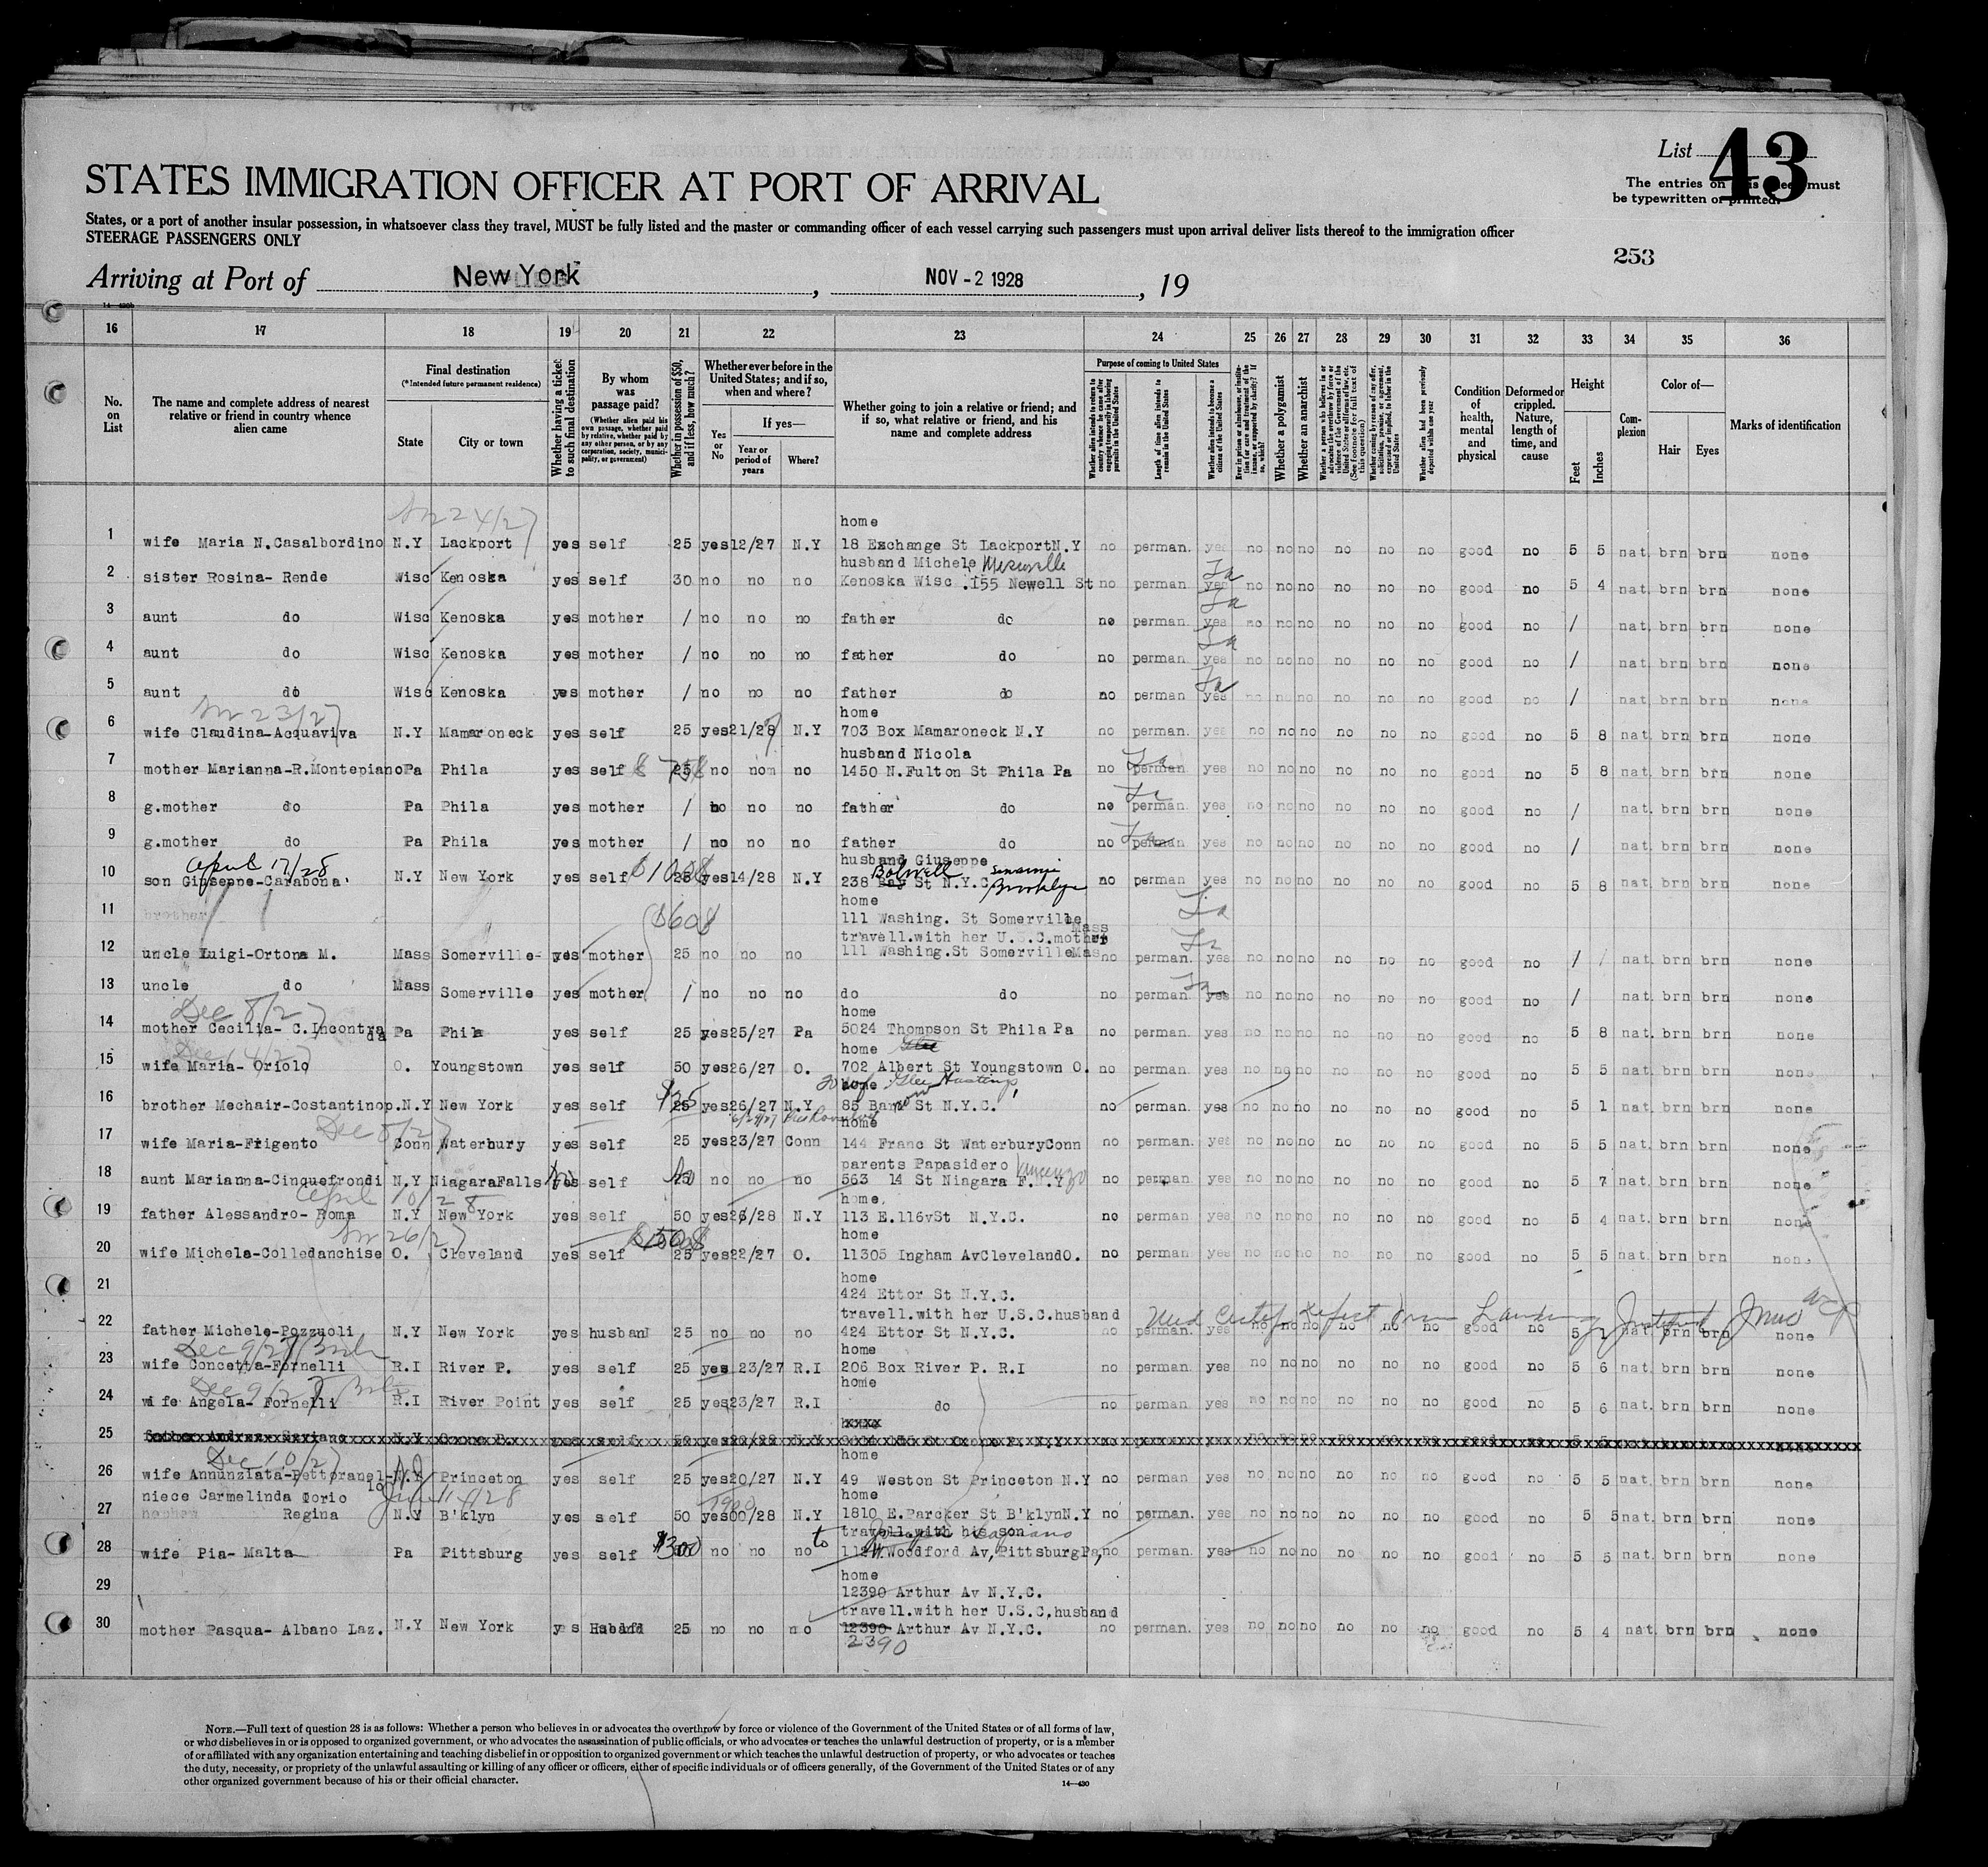 List 43
STATES IMMIGRATION OFFICER AT PORT OF ARRIVAL
The entries on this sheet must
be typewritten or printed.
States, or a port of another insular possession, in whatsoever class they travel, MUST be fully listed and the master or commanding officer of each vessel carrying such passengers must upon arrival deliver lists thereof to the immigration officer
STEERAGE PASSENGERS ONLY
253
Arriving at Port of New York, NOV - 2 1928, 19
14—430b
16 17 18 19 20 21 22 23 24 25 26 27 28 29 30 31 32 33 34 35 36
No. on List
The name and complete address of nearest relative or friend in country whence alien came
Final destination
(*Intended future permanent residence)
State
City or town
Whether having a ticket to such final destination
By whom was passage paid?
(Whether alien paid his own passage, whether paid by relative, whether paid by any other person, or by any corporation, society, municipality, or government)
Whether in possession of $50, and if less, how much?
Whether ever before in the United States; and if so, when and where?
Yes or No
If yes—
Year or period of years
Where?
Whether going to join a relative or friend; and if so, what relative or friend, and his name and complete address
Purpose of coming to United States
Whether alien intends to return to country whence he came after engaging temporarily in laboring pursuits in the United States
Length of time alien intends to remain in the United States
Whether alien intends to become a citizen of the United States
Ever in prison or almshouse, or institution for care and treatment of the insane, or supported by charity? If so, which?
Whether a polygamist
Whether an anarchist
Whether a person who believes in or advocates the overthrow by force or violence of the Government of the United States or all forms of law, etc. (See footnote for full text of this question)
Whether coming by reason of any offer, solicitation, promise, or agreement, expressed or implied, to labor in the United States
Whether alien had been previously deported within one year
Condition of health, mental and physical
Deformed or crippled. Nature, length of time, and cause
Height
Feet
Inches
Complexion
Color of—
Hair
Eyes
Marks of identification
24/27
home
1 wife Maria N.Casalbordino N.Y Lackport yes self 25 yes 12/27 N.Y 18 Exchange St LackportN.Y no perman. yes no no no no no no good no 5 5 nat. brn brn none
husband Michele
2 sister Rosina- Rende Wisc Kenoska yes self 30 no no no Kenoska Wisc .155 Newell St no perman. yes no no no no no no good no 5 4 nat. brn brn none
3 aunt do Wisc Kenoska yes mother / no no no father do no perman. yes no no no no no no good no / nat. brn brn none
4 aunt do Wisc Kenoska yes mother / no no no father do no perman. yes no no no no no no good no / nat. brn brn none
5 aunt do Wisc Kenoska yes mother / no no no father do no perman yes no no no no no no good no / nat. brn brn none
23/27
home
6 wife Claudina-Acquaviva N.Y Mamaroneck yes self 25 yes 21/28 N.Y 703 Box Mamaroneck N.Y no perman. yes no no no no no no good no 5 8 nat. brn brn none
husband Nicola
7 mother Marianna-R.Montepiano Pa Phila yes self 25 no no no 1450 N.Fulton St Phila Pa no perman yes no no no no no no good no 5 8 nat. brn brn none
8 g.mother do Pa Phila yes mother / no no no father do no perman. yes no no no no no no good no / nat. brn brn none
9 g.mother do Pa Phila yes mother / no no no father do no perman. yes no no no no no no good no / nat. brn brn none
April 17/28
husband Giuseppe
10 son Giuseppe-Carabona N.Y New York yes self 25 yes 14/28 N.Y 238 Bay St N.Y.C. Brooklyn no perman yes no no no no no no good no 5 8 nat. brn brn none
home
11 brother
$60
111 Washing. St Somerville Mass
travell.with her U.S.C.mother
12 uncle Luigi-Ortona M. Mass Somerville- yes mother 25 no no no 111 Washing.St Somerville Mas no perman. yes no no no no no no good no / / nat. brn brn none
13 uncle do Mass Somerville yes mother / no no no do do no perman. yes no no no no no no good no / nat. brn brn none
Dec 8/27
home
14 mother Cecilia- C.Incontrada Pa Phila yes self 25 yes 25/27 Pa 5024 Thompson St Phila Pa no perman. yes no no no no no no good no 5 8 nat. brn brn none
home
15 wife Maria- Oriolo O. Youngstown yes self 50 yes 26/27 O. 702 Albert St Youngstown O. no perman. yes no no no no no no good no 5 5 nat. brn brn none
home
16 brother Mechair-Costantinop. N.Y New York yes self 25 yes 26/27 N.Y 85 St N.Y.C. no perman. yes no no no no no no good no 5 1 nat. brn brn none
Dec 8/27
home
17 wife Maria-Frigento Conn Waterbury yes self 25 yes 23/27 Conn 144 Franc St WaterburyConn no perman. yes no no no no no no good no 5 5 nat. brn brn none
parents Papasidero Vincenzo
18 aunt Marianna-Cinquefrondi N.Y NiagaraFalls yes self no no no 563 14 St Niagara F. .Y no perman. yes no no no no no no good no 5 7 nat. brn brn none
April 10/28
home.
19 father Alessandro- Roma N.Y New York yes self 50 yes 26/28 N.Y 113 E.116vSt N.Y.C. no perman. yes no no no no no no good no 5 4 nat. brn brn none
26/27
home
20 wife Michela-Colledanchise O. Cleveland yes self 25 yes 22/27 O. 11305 Ingham AvClevelandO. no perman. yes no no no no no no good no 5 5 nat. brn brn none
21 home
424 Ettor St N.Y.C.
travell.with her U.S.C.husband
22 father Michele-Pozzuoli N.Y New York yes husband 25 no no no 424 Ettor St N.Y.C. no perman. yes no no no no no no good no 5 2 nat. brn brn none
Dec 9/27
home
23 wife Concetta-Fornelli R.I River P. yes self 25 yes 23/27 R.I 206 Box River P. R.I no perman. yes no no no no no no good no 5 6 nat. brn brn none
Dec 9/27
home
24 wife Angela- Fornelli R.I River Point yes self 25 yes 23/27 R.I do no perman. yes no no no no no no good no 5 6 nat. brn brn none
25
Dec 10/27
home
26 wife Annunziata-Pettoranel-lo N.Y Princeton yes self 25 yes 20/27 N.Y 49 Weston St Princeton N.Y no perman yes no no no no no no good no 5 5 nat. brn brn none
niece Carmelinda Torio
June 11/28
1900
home
27 nephew Regina N.Y B'klyn yes self 50 yes 00/28 N.Y 1810 E.Parcker St B'klynN.Y no perman. yes no no no no no no good no 5 5 nat. brn brn none
travell.with his son
28 wife Pia- Malta Pa Pittsburg yes self $300 no no no to 112 W.Woodford Av, PittsburgPa, no perman. yes no no no no no no good no 5 5 nat. brn brn none
29 home
12390 Arthur Av N.Y.C.
travell.with her U.S.C.husband
30 mother Pasqua- Albano Laz. N.Y New York yes 25 no no no 12390 Arthur Av N.Y.C. no perman. yes no no no no no no good no 5 4 nat. brn brn none
2390
NOTE.—Full text of question 28 is as follows: Whether a person who believes in or advocates the overthrow by force or violence of the Government of the United States or of all forms of law,
or who disbelieves in or is opposed to organized government, or who advocates the assassination of public officials, or who advocates or teaches the unlawful destruction of property, or is a member
of or affiliated with any organization entertaining and teaching disbelief in or opposition to organized government or which teaches the unlawful destruction of property, or who advocates or teaches
the duty, necessity, or propriety of the unlawful assaulting or killing of any officer or officers, either of specific individuals or of officers generally, of the Government of the United States or of any
other organized government because of his or their official character.
14—430